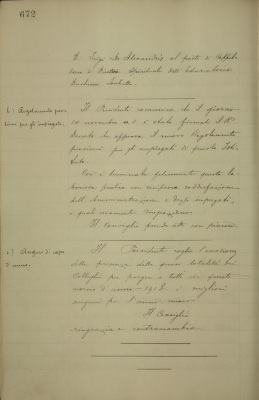 672
D. Luigi De Alessandris al posto di
e Direttore Spirituale dell'Educatorio
b) Regolamento pen-
sioni per gli impiegati.
Il Presidente comunica che il giorno
10 novembre u. s. è stato firmato il R.
Decreto che approva il nuovo Regolamento
pensioni per gli impiegati di questo Isti-
tuto.
Così è terminata felicemente questa la-
boriosa pratica con soddisfazione
dell'Amministrazione e degli impiegati,
i quali
Il Consiglio prende atto con piacere.
c) Auguri di capo
d'anno.
Il Presidente coglie l'occasione
della presenza della quasi totalità dei
Colleghi per porgere a tutti in questo
d'anno 1918 i migliori
auguri per l'anno nuovo.
Il Consiglio
ringrazia e contraccambia.